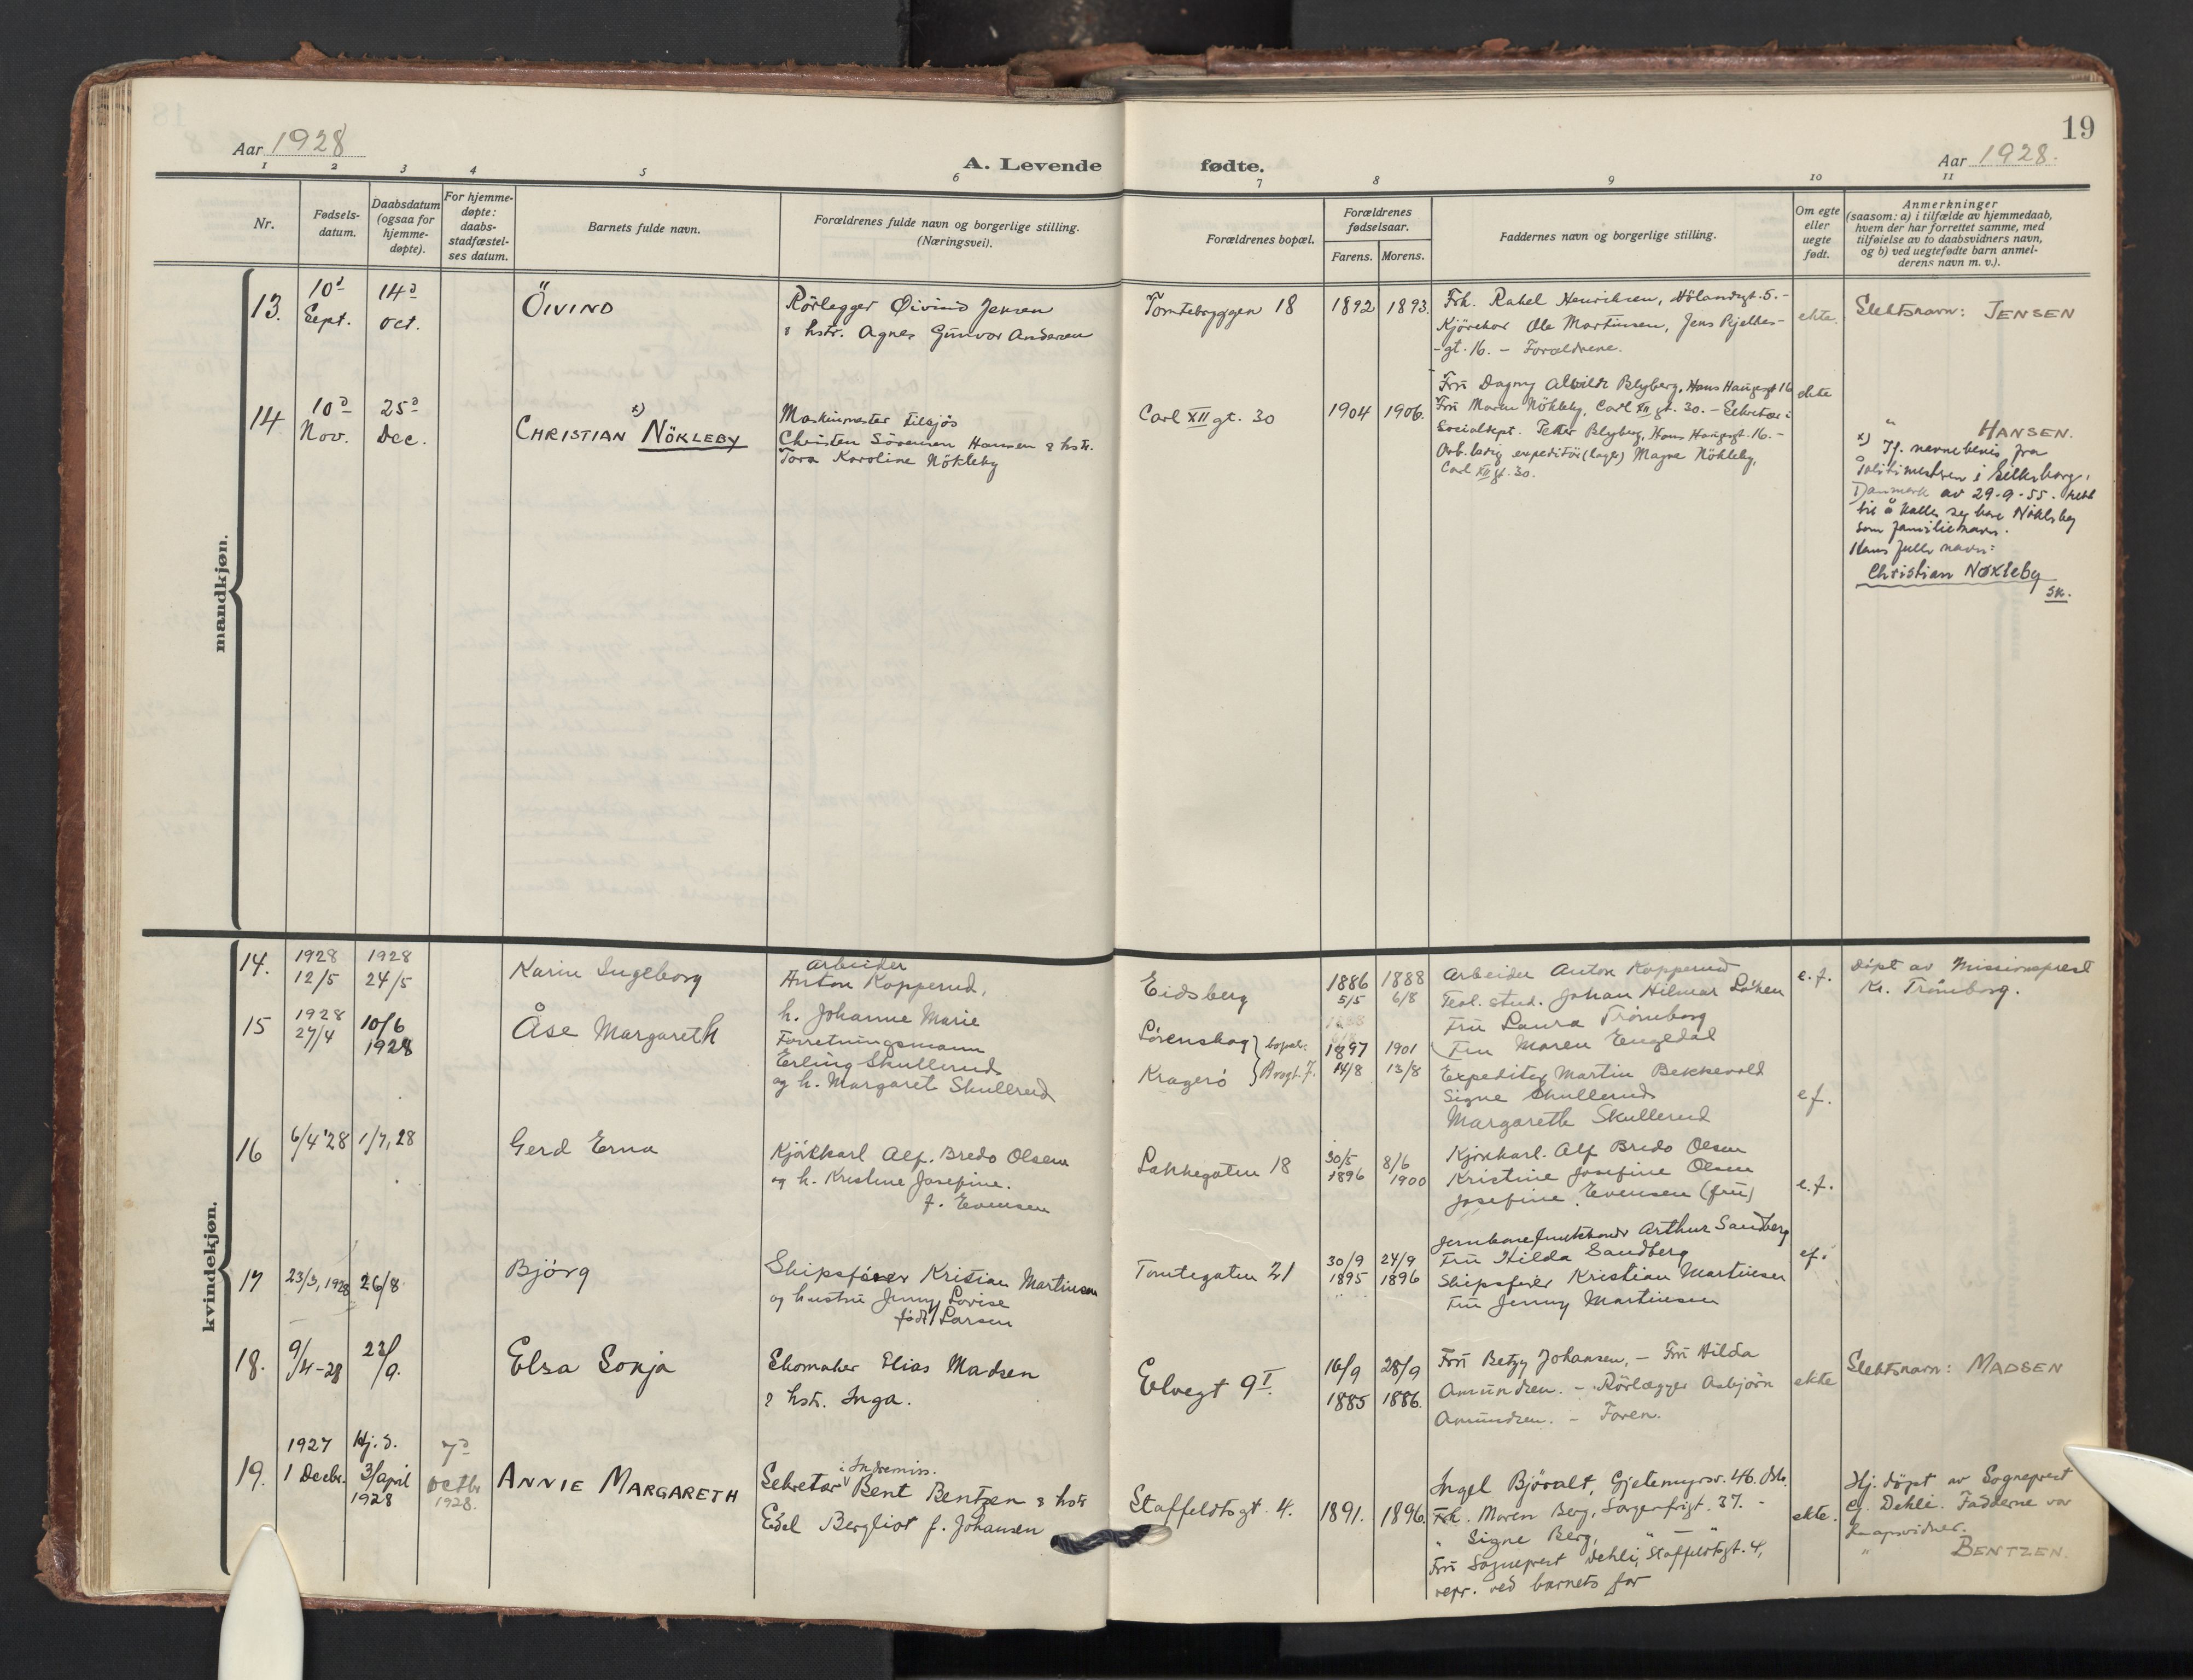 19
Aar 1928
A. Levende fødte.
Aar 1928.
1 2 3 4 5 6 7 8 9 10 11
Nr.
Fødsels-
datum.
Daabsdatum
(ogsaa for
hjemme-
døpte).
For hjemme-
døpte:
daabs-
stadfæstel-
ses datum.
Barnets fulde navn.
Forældrenes fulde navn og borgerlige stilling.
(Næringsvei).
Forældrenes bopæl.
Forældrenes
fødselsaar.
Farens. Morens.
Faddernes navn og borgerlige stilling.
Om egte
eller
uegte
født.
Anmerkninger
(saasom: a) i tilfælde av hjemmedaab,
hvem der har forrettet samme, med
tilføielse av to daabsvidners navn,
og b) ved uegtefødte barn anmel-
derens navn m. v.).
mandkjøn.
13.
10d
Sept.
14d
Oct.
ÖIVIND
Rörlegger Øivind Jensen
& hstr. Agnes Gunvor Andersen
Tomtebryggen 18
1892
1893.
Frk. Rakel Henriksen, Hölandsgt. 5. -
Kjörekar Ole Martinsen, Jens Bjelkes-
- gt. 16. - Forældrene.
ekte.
Slektsnavn: JENSEN
14
10d
Nov.
25d
Dec.
x)
CHRISTIAN NÖKLEBY
Maskinmester tilsjös
Christen Sörensen Hansen & hstr.
Tora Karoline Nökleby
Carl XII gt. 30
1904
1906.
Fru Dagny Alvilde Blyberg, Hans Haugesgt 16
Fru Maren Nökleby, Carl XII gt. 30. - Sekretær i
Socialdept. Petter Blyberg, Hans Haugesgt. 16. -
Arb.ledig expeditör (lager) Magne Nökleby,
Carl XII gt. 30.
ekte
" HANSEN.
x) If. navnebevis fra
Politimestren i Silkeborg,
Danmark av 29-9-55. rett
til å kalle seg bare Nökleby
som familienavn.
Hans fulle navn:
Christian Nøkleby
Sk.
kvindekjøn.
14.
1928
12/5
1928
24/5
Karin Ingeborg
Arbeider
Anton Kopperud,
h. Johanne Marie
Eidsberg
1886
5/5
1888
6/8
Arbeider Anton Kopperud
Teol. stud. Johan Hilmar Löken
Fru Laura Trömborg
Fru Maren Engedal
e.f.
Döpt av Missionsprest
Kr. Trömborg.
15
1928
27/4
10/6
1928
Åse Margareth
Forretningsmann
Erling Skullerud
og h. Margaret Skullerud
Lörenskog } bopæl.
Kragerö
1897
14/8
1901
13/8
Expeditör Martin Bekkevold
Signe Skullerud
Margareth Skullerud
ef.
16
6/4 '28
1/7, 28
Gerd Erna
Kjörkarl Alf. Bredo Olsen
og h. Kristine Josefine.
f. Evensen
Lakkegaten 18
30/5
1896
8/6
1900
Kjörkarl. Alf Bredo Olsen
Kristine Josefine Olsen
Josefine Evensen (fru)
e.f.
17
23/3, 1928
26/8
Björg
Skipsförer Kristian Martinsen
og hustru Jenny Lovise
född Larsen
Tomtegaten 21
30/9
1895
24/9
1896
Jernbanefunktionær Arthur Sandberg
Fru Hilda Sandberg
Skipsförer Kristian Martinsen
Fru Jenny Martinsen
ef.
18.
9/4-28
23/9.
Elsa Sonja
Skomaker Elias Madsen
& hstr. Inga.
Elvegt 9 I.
16/9
1885
28/9
1886.
Fru Betzy Johansen, - Fru Hilda
Amundsen. - Rörlægger Asbjörn
Amundsen. - Faren.
ekte
Slektsnavn: MADSEN
19.
1927
1 Decbr.
Hj. d.
3/april
1928
7d
Octbr
1928.
ANNIE MARGARETH
i Indremiss.
Sekretær Bent Bentzen & hstr
Edel Bergliot f. Johansen
Staffeldtsgt. 4.
1891.
1896.
Ingel Björvalt, Gjetemyrsv. 46. Oslo.
Frk. Maren Berg, Sorgenfrigt. 37. -
" Signe Berg, " - "
Fru Sogneprest Dehli, Staffeldtsgt. 4,
repr. ved barnets far
ekte.
Hj. döpt av Sogneprest
Dehli. Fadderne var
daapsvidner.
" BENTZEN.